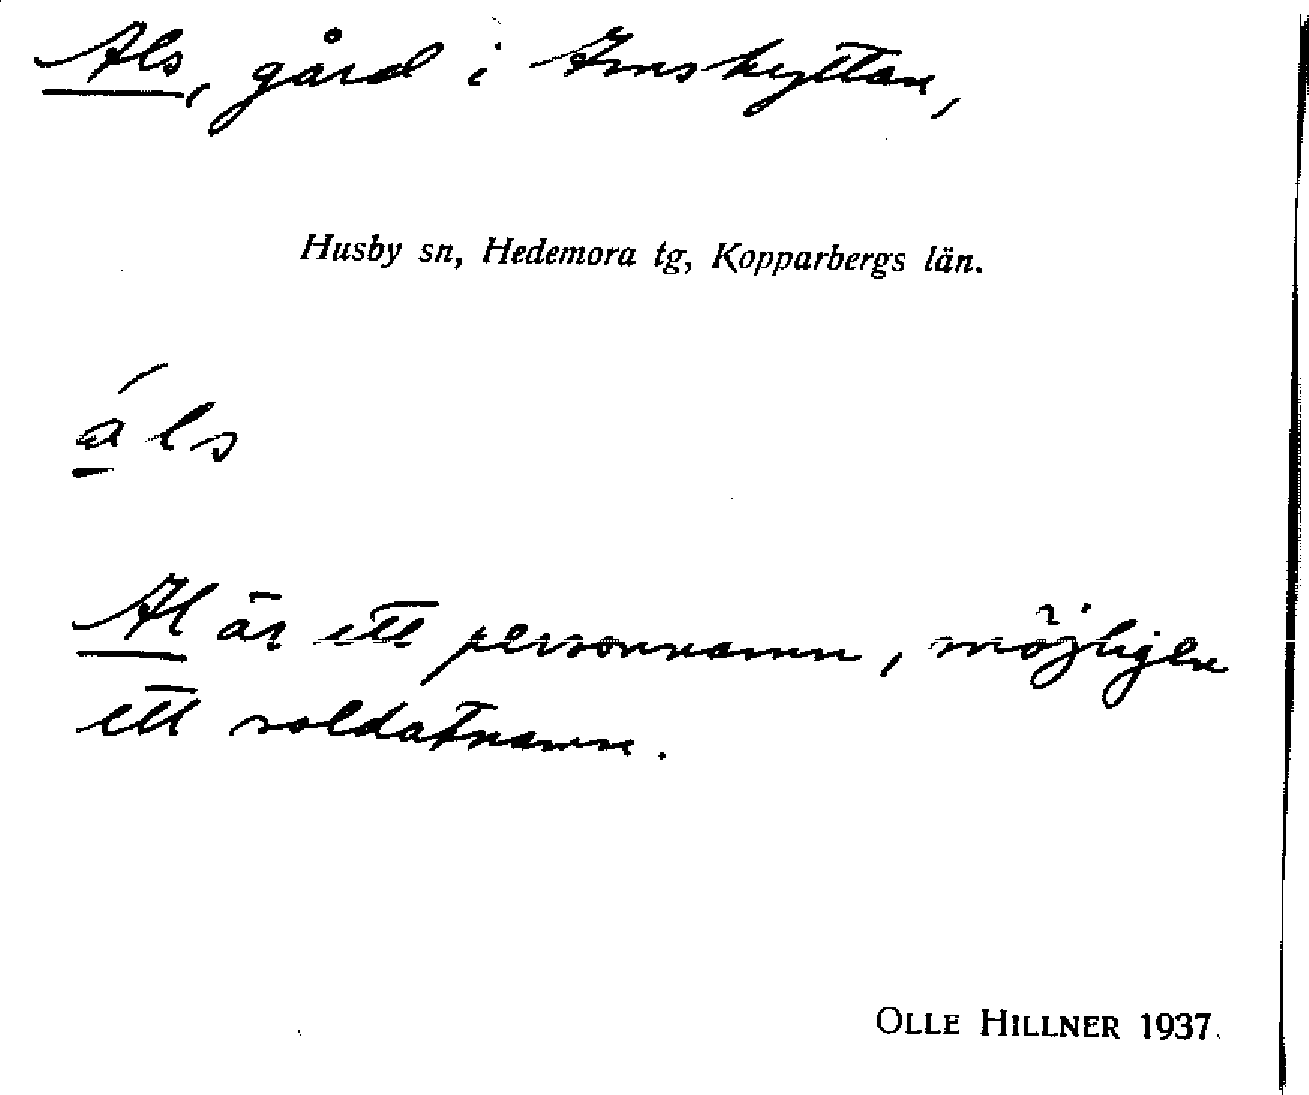 Als, gård i Smedshyttan,
Husby sn, Hedemora tg, Kopparbergs län.
áls
Al är ett personnamn, möjligen
ett soldatnamn.
OLLE HILLNER 1937.